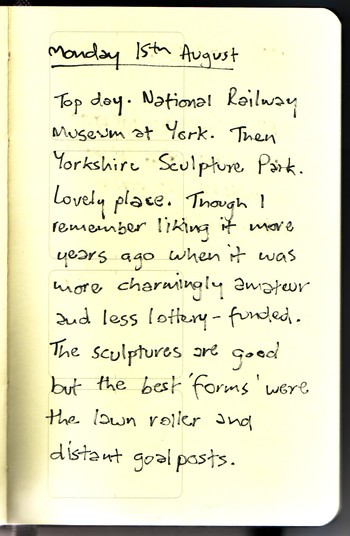 Monday 15th August
Top day. National Railway
Museum at York. Then
Yorkshire Sculpture Park.
Lovely place. Though I
remember liking it more
years ago when it was
more charmingly amateur
and less lottery-funded.
The sculptures are good
but the best 'forms' were
the lawn roller and
distant goalposts.